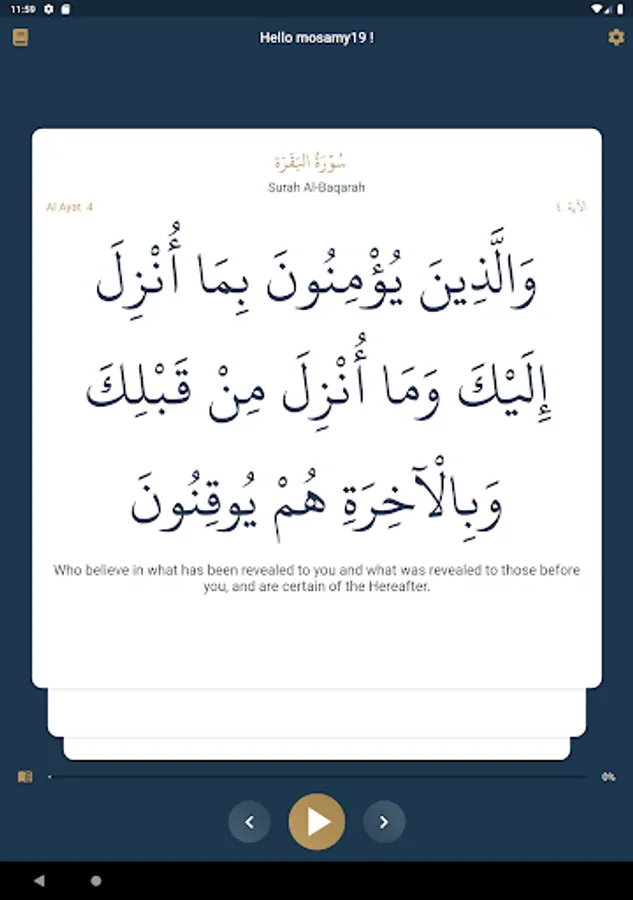 11:59
Hello mosamy19 !
سُوْرَةُ البَقَرَة
Surah Al-Baqarah
Al Ayat 4
الآية ٤
وَالَّذِينَ يُؤْمِنُونَ بِمَا أُنْزِلَ
إِلَيْكَ وَمَا أُنْزِلَ مِنْ قَبْلِكَ
وَبِالْآخِرَةِ هُمْ يُوقِنُونَ
Who believe in what has been revealed to you and what was revealed to those before
you, and are certain of the Hereafter.
0%